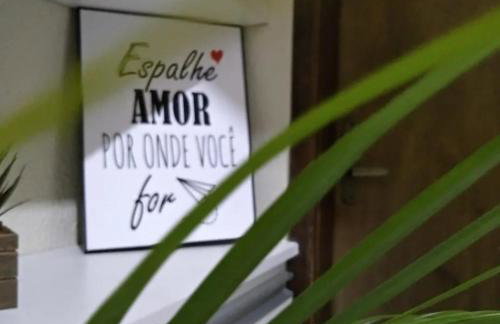 Espalhe
AMOR
POR ONDE VOCÊ
for